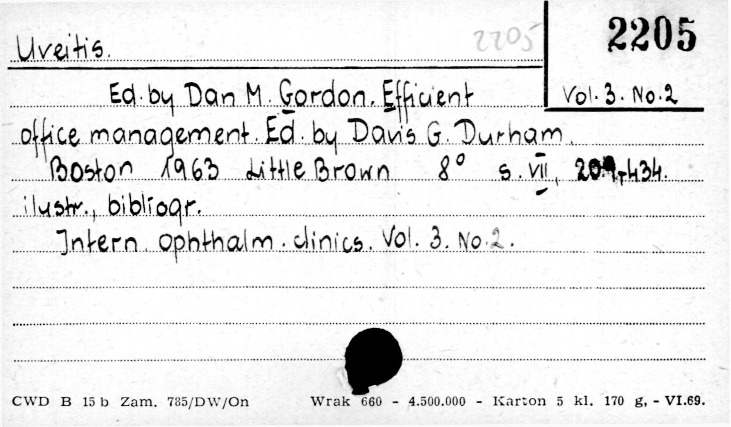 Uveitis. 2205 2205
Ed. by Dan M. Gordon. Efficient Vol. 3. No. 2
office management. Ed. by Davis G. Durham.
Boston 1963 Little Brown 8° s. VII, -434.
ilustr., bibliogr.
Intern. Ophthalm. clinics. Vol. 3. No. 2.
CWD B 15 b Zam. 785/DW/On Wrak 660 - 4.500.000 - Karton 5 kl. 170 g, - VI.69.